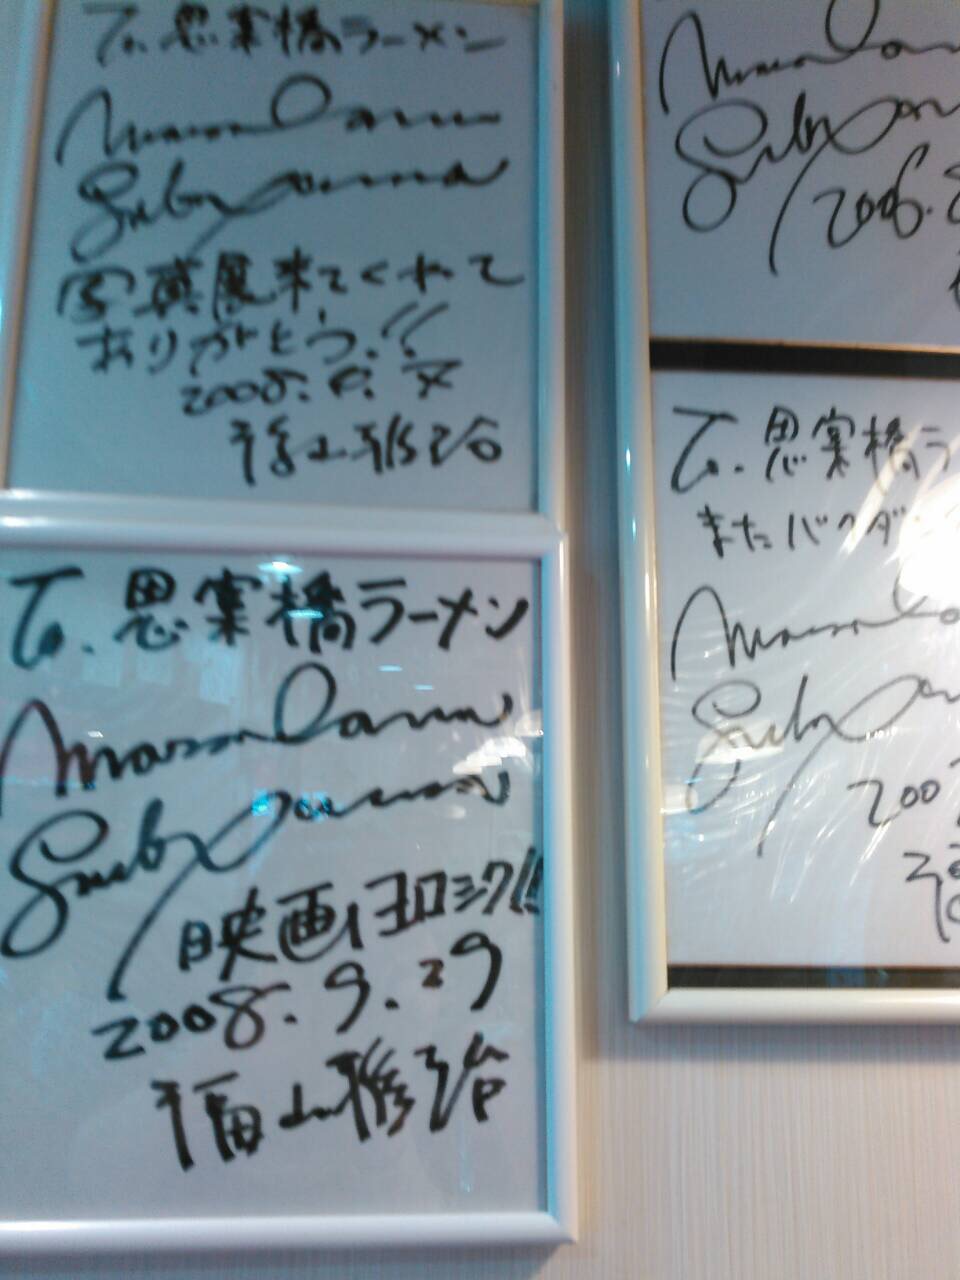 To. 思案橋ラーメン
Masaharu
Fukuyama
写真展来てくれて
ありがとう!!
福山雅治
To. 思案橋ラーメン
Masaharu
Fukuyama
映画ヨロシク!!
2008.9.29
福山雅治
Masaha
Fukuyam
2006.
To. 思案橋ラ
またバクダン
Masaha
Fukuyam
200
福